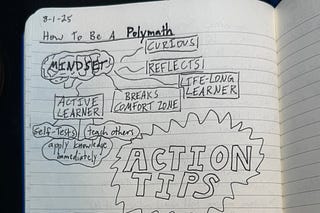 8-1-25
How To Be A Polymath
MINDSET
CURIOUS
REFLECTS
LIFE-LONG
LEARNER
BREAKS
COMFORT ZONE
ACTIVE
LEARNER
Self-Tests
teach others
apply knowledge
immediately
ACTION
TIPS